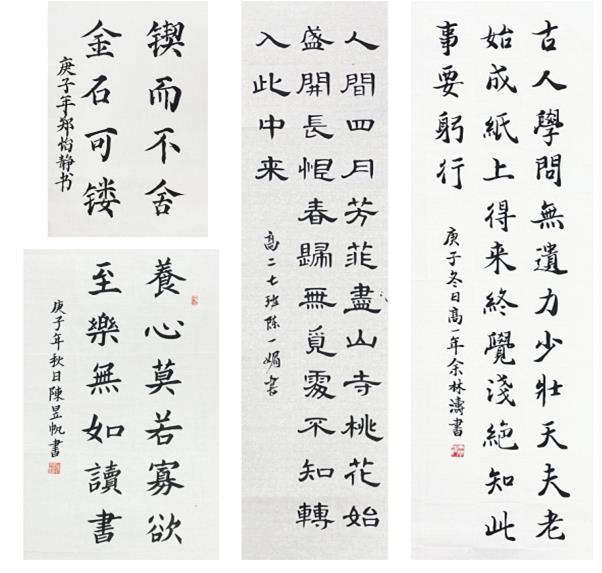 锲而不舍
金石可镂
庚子年郑怡静书
養心莫若寡欲
至樂無如讀書
庚子年秋日陳昱帆書
人間四月芳菲盡山寺桃花始
盛開長恨春歸無覓處不知轉
入此中来
高二七班陈一媚书
古人學問無遺力少壯天夫老
始成紙上得来終覺淺絕知此
事要躬行
庚子冬日高一年余林濤書